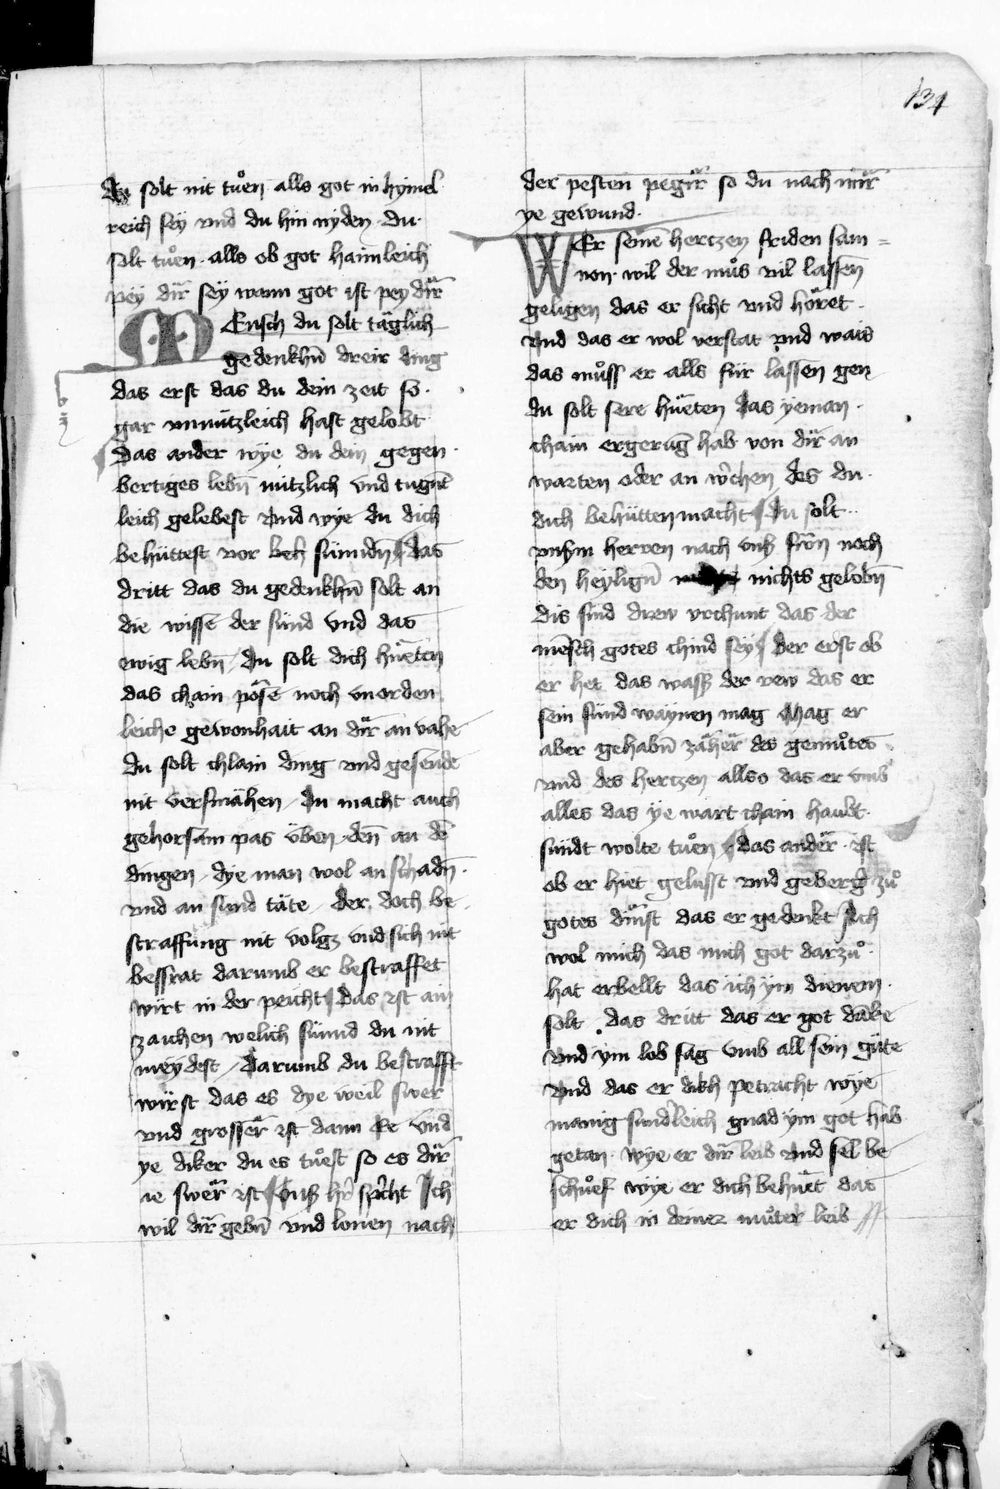 134
du solt nit tuͦen alls got in hymel
reich sey vnd du hin nyden · du ·
solt tuͦen · alls ob got haimleich
pey dir sey wann got ist pey dir
MEnsch du solt täglich
gedenkhn̄ dreir ding
das erst das du dein zeit so ·
gar vnnützleich hast gelobt
das ander wye du dein gegen ·
bertiges lebn̄ nützlich vnd tugnt
leich gelebest vnd wye du dich
behüttest vor sündn̄ das
dritt das du gedenkhn̄ solt an
die wissē der sünd vnd das
ewig lebn̄ / du solt dich hüeten
das chain pöse noch vnorden
leiche gewonhait an dir an vahe
du solt chlain ding vnd gesende
nit versmähen / du macht auch
gehorsam pas üben · den̄ an dē
dingen / dye man wol an schadn̄ ·
vnd an sünd täte / der doch be ·
straffung nit volgz vnd sich nit
bessrat darumb er bestraffet
wirt in der peicht das ist ain
zaichen welich sünnd du nit
meydest / darumb du bestrafft
wirst das es dye weil swer
vnd grosser ist dann ee vnd
ye diker du es tuͦest so es dir
ie swer ist vnß hr̄ spricht Ich
wil dir gebn̄ vnd lonen nach
der pesten pegir so du nach mir
ye gewund ·
WEr seinē hertzen friden sam =
non · wil der muͦs vil lassen
geligen das er sicht vnd höret ·
vnd das er wol verstat vnd wais
das muͦss er alls für lassen gen
du solt sere hüeten das yeman ·
chain ergerūg hab von dir an
warten oder an wͦchen des du ·
dich behütten macht du solt ·
vnsm herren nach vnß frön noch
den heylign̄ nichts gelobn̄
dis sind drew vrchunt das der
mensch gotes chind sey der erst ob
er het das wasß der rew das er
sein sünd waynen mag Mag er
aber gehabn̄ zäher des gemuͦtes
vnd des hertzen allso das er vmb
alles das ye wart chain haubt ·
sündt wolte tuͦen das ander · ist
ob er hiet gelusst vnd geberg zuͦ
gotes dinst das er gedenkt Ach
wol mich das mich got darzuͦ ·
hat erbellt das ich ym dienem ·
solt · das drit das er got dāke
vnd ym lob sag vmb all sein güte
vnd das er dikh petracht wye
manig sunderleich gnad ym got hab
getan · wye er dir leib vnd sel be
schuͦef wye er dich behüet das
er dich in deiner muͦter leib